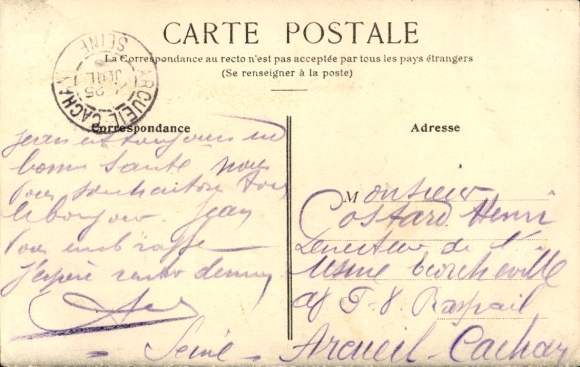 CARTE POSTALE
La Correspondance au recto n'est pas acceptée par tous les pays étrangers
(Se renseigner à la poste)
ARCUEIL-CACHAN
SEINE
25
Correspondance
Jean est toujours en
bonne santé nous
vous souhaitons tous
le bonjour. Jean
vous embrasse
J'espère rentrer demain
Adresse
Monsieur
Costard Henri
Directeur de l'
Usine
Raspail
Arcueil-Cachan
Seine